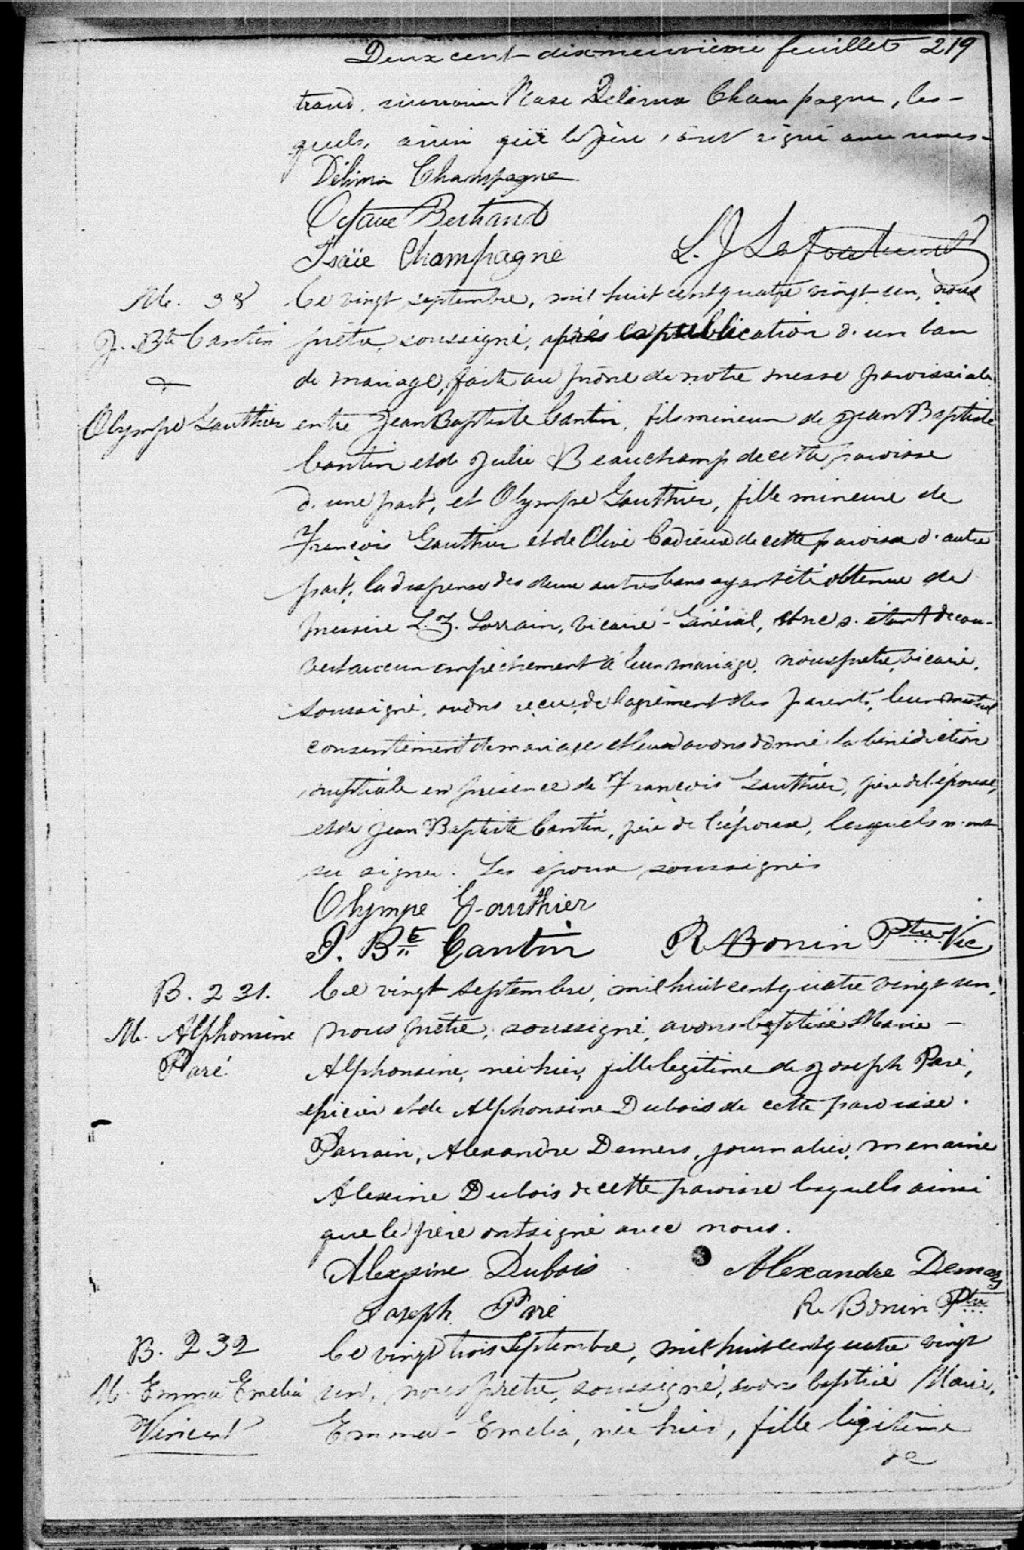 Deux cent dix neuvième feuillet 219
trand, marraine Rose Délima Champagne, les-
quels, ainsi que le père, ont signé avec nous-
Délima Champagne
Octave Bertrand
Isaïe Champagne L. J. Lafortune
M. 38
J. Bte Cantin
&
Olympe Gauthier
Ce vingt septembre, mil huit cent quatre vingt-un, nous
prêtre, soussigné, après la publication d'un ban
de mariage, faite au prône de notre messe paroissiale
entre Jean Baptiste Cantin, fils mineur de Jean Baptiste
Cantin et de Julie Beauchamp de cette paroisse
d'une part, et Olympe Gauthier, fille mineure de
François Gauthier et de Olive Cadieux de cette paroisse d'autre
part, la dispense des deux autres bans ayant été obtenue de
Messire Lorrain, Vicaire-Général, et ne s'étant décou-
vert aucun empêchement à leur mariage, nous prêtre, vicaire,
soussigné, avons reçu, de l'agrément des parents, leur mutuel
consentement de mariage et leur avons donné la bénédiction
nuptiale en présence de François Gauthier, père de l'épouse,
et de Jean Baptiste Cantin, père de l'époux, lesquels n'ont
su signer. Les époux soussignés
Olympe Gauthier
J. Bte Cantin R Bonin Ptre Vic
B. 231.
M. Alphonsine
Paré
Ce vingt septembre, mil huit cent quatre vingt un,
nous prêtre, soussigné, avons baptisé Marie-
Alphonsine, née hier, fille légitime de Joseph Paré,
épicier et de Alphonsine Dubois de cette paroisse.
Parrain, Alexandre Demers, journalier, marraine
Alexine Dubois de cette paroisse lesquels ainsi
que le père ont signé avec nous.
Alexsine Dubois Alexandre Demers
Joseph Paré R. Bonin Ptre
B. 232
M. Emma Emelia
Vincent
Ce vingt trois septembre, mil huit cent quatre vingt
un, nous prêtre, soussigné, avons baptisé Marie,
Emma-Emelia, née hier, fille légitime
de